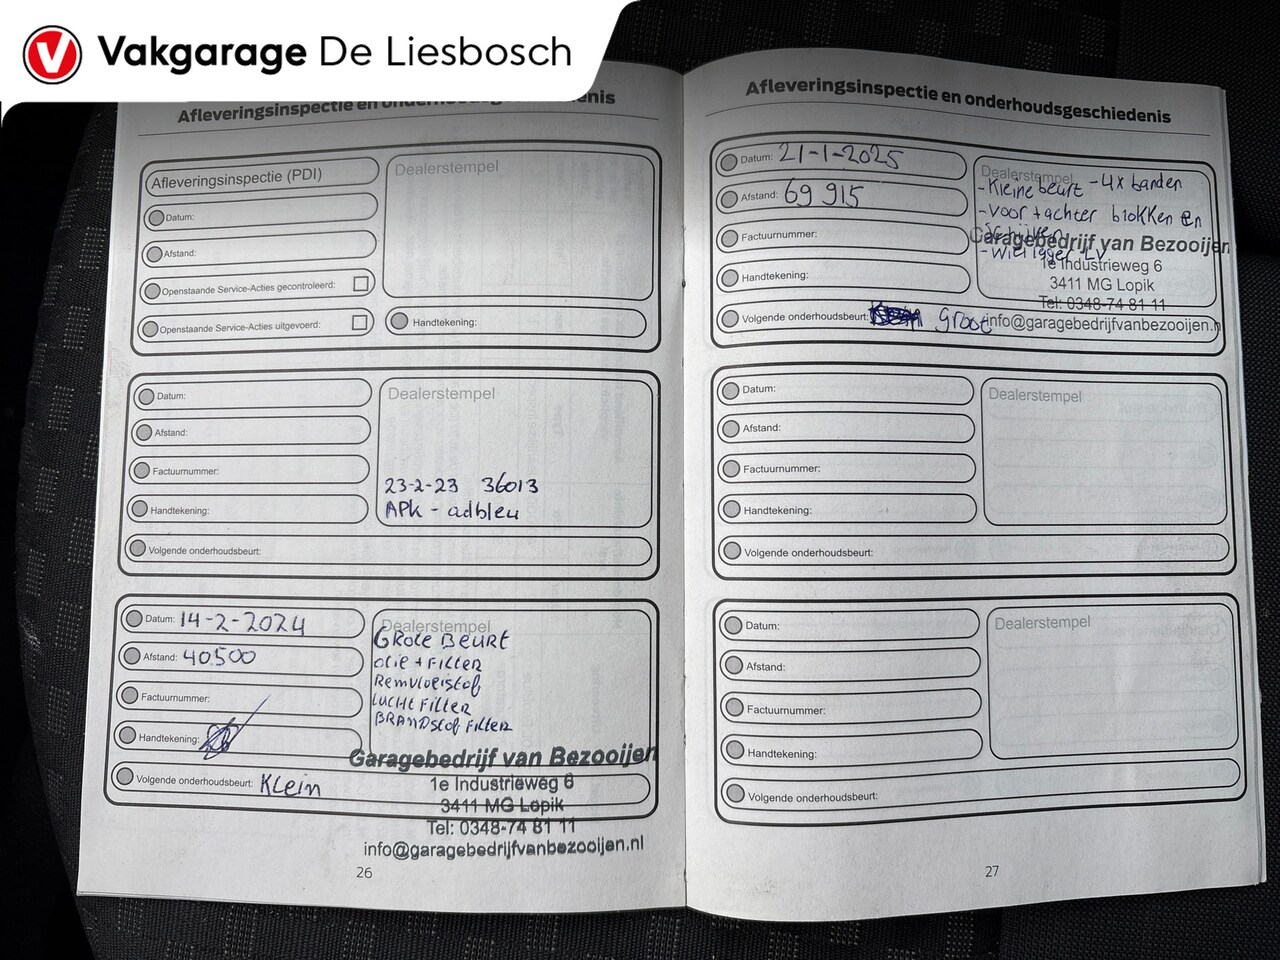 Vakgarage De Liesbosch
Afleveringsinspectie en onderhoudsgeschiedenis
Afleveringsinspectie (PDI)
Datum:
Afstand:
Openstaande Service-Acties gecontroleerd:
Openstaande Service-Acties uitgevoerd:
Dealerstempel
Handtekening:
Datum:
Afstand:
Factuurnummer:
Handtekening:
Volgende onderhoudsbeurt:
Dealerstempel
23-2-23 36013
APK - adbleu
Datum: 14-2-2024
Afstand: 40500
Factuurnummer:
Handtekening:
Volgende onderhoudsbeurt: Klein
Dealerstempel
GROTE BEURT
olie + Filter
Remvloeistof
LUCHT FILTER
BRANDStof Filter
Garagebedrijf van Bezooijen
1e Industrieweg 6
3411 MG Lopik
Tel: 0348-74 81 11
info@garagebedrijfvanbezooijen.nl
26
Afleveringsinspectie en onderhoudsgeschiedenis
Datum: 21-1-2025
Afstand: 69 915
Factuurnummer:
Handtekening:
Volgende onderhoudsbeurt: groot
Dealerstempel
- Kleine beurt - 4x banden
- Voor + achter blokken en
schijven
- Wiellager LV
Garagebedrijf van Bezooijen
1e Industrieweg 6
3411 MG Lopik
Tel: 0348-74 81 11
info@garagebedrijfvanbezooijen.n
Datum:
Afstand:
Factuurnummer:
Handtekening:
Volgende onderhoudsbeurt:
Dealerstempel
Datum:
Afstand:
Factuurnummer:
Handtekening:
Volgende onderhoudsbeurt:
Dealerstempel
27